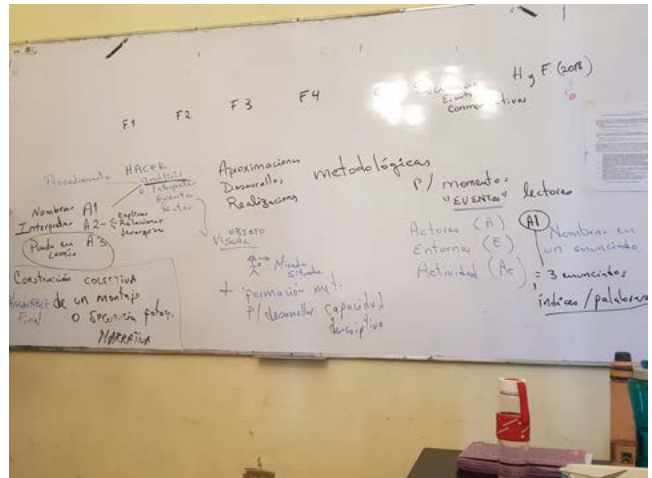 F1 F2 F3 F4
H y F (2018)
Eventos
Conmemorativas
Procedimiento HACER
análisis
Nombrar A1
Interpretar A2 Explicar
Relacionar
Puesta en común A3
Construcción COLECTIVA
de un montaje
Final. o Secuencia fotog.
NARRATIVA
Aproximaciones metodológicas
Desarrollos
Realizaciones
OBJETO
VISUAL
Mirada
situada
+ formación met.
P/ desarrollar capacidad
descriptiva
P/ momento.
"EVENTOS" lectores
Actores (A)
Entornos (E)
Actividad (Ac)
A1 Nombrar en
un enunciado
= 3 enunciados
índices / palabras